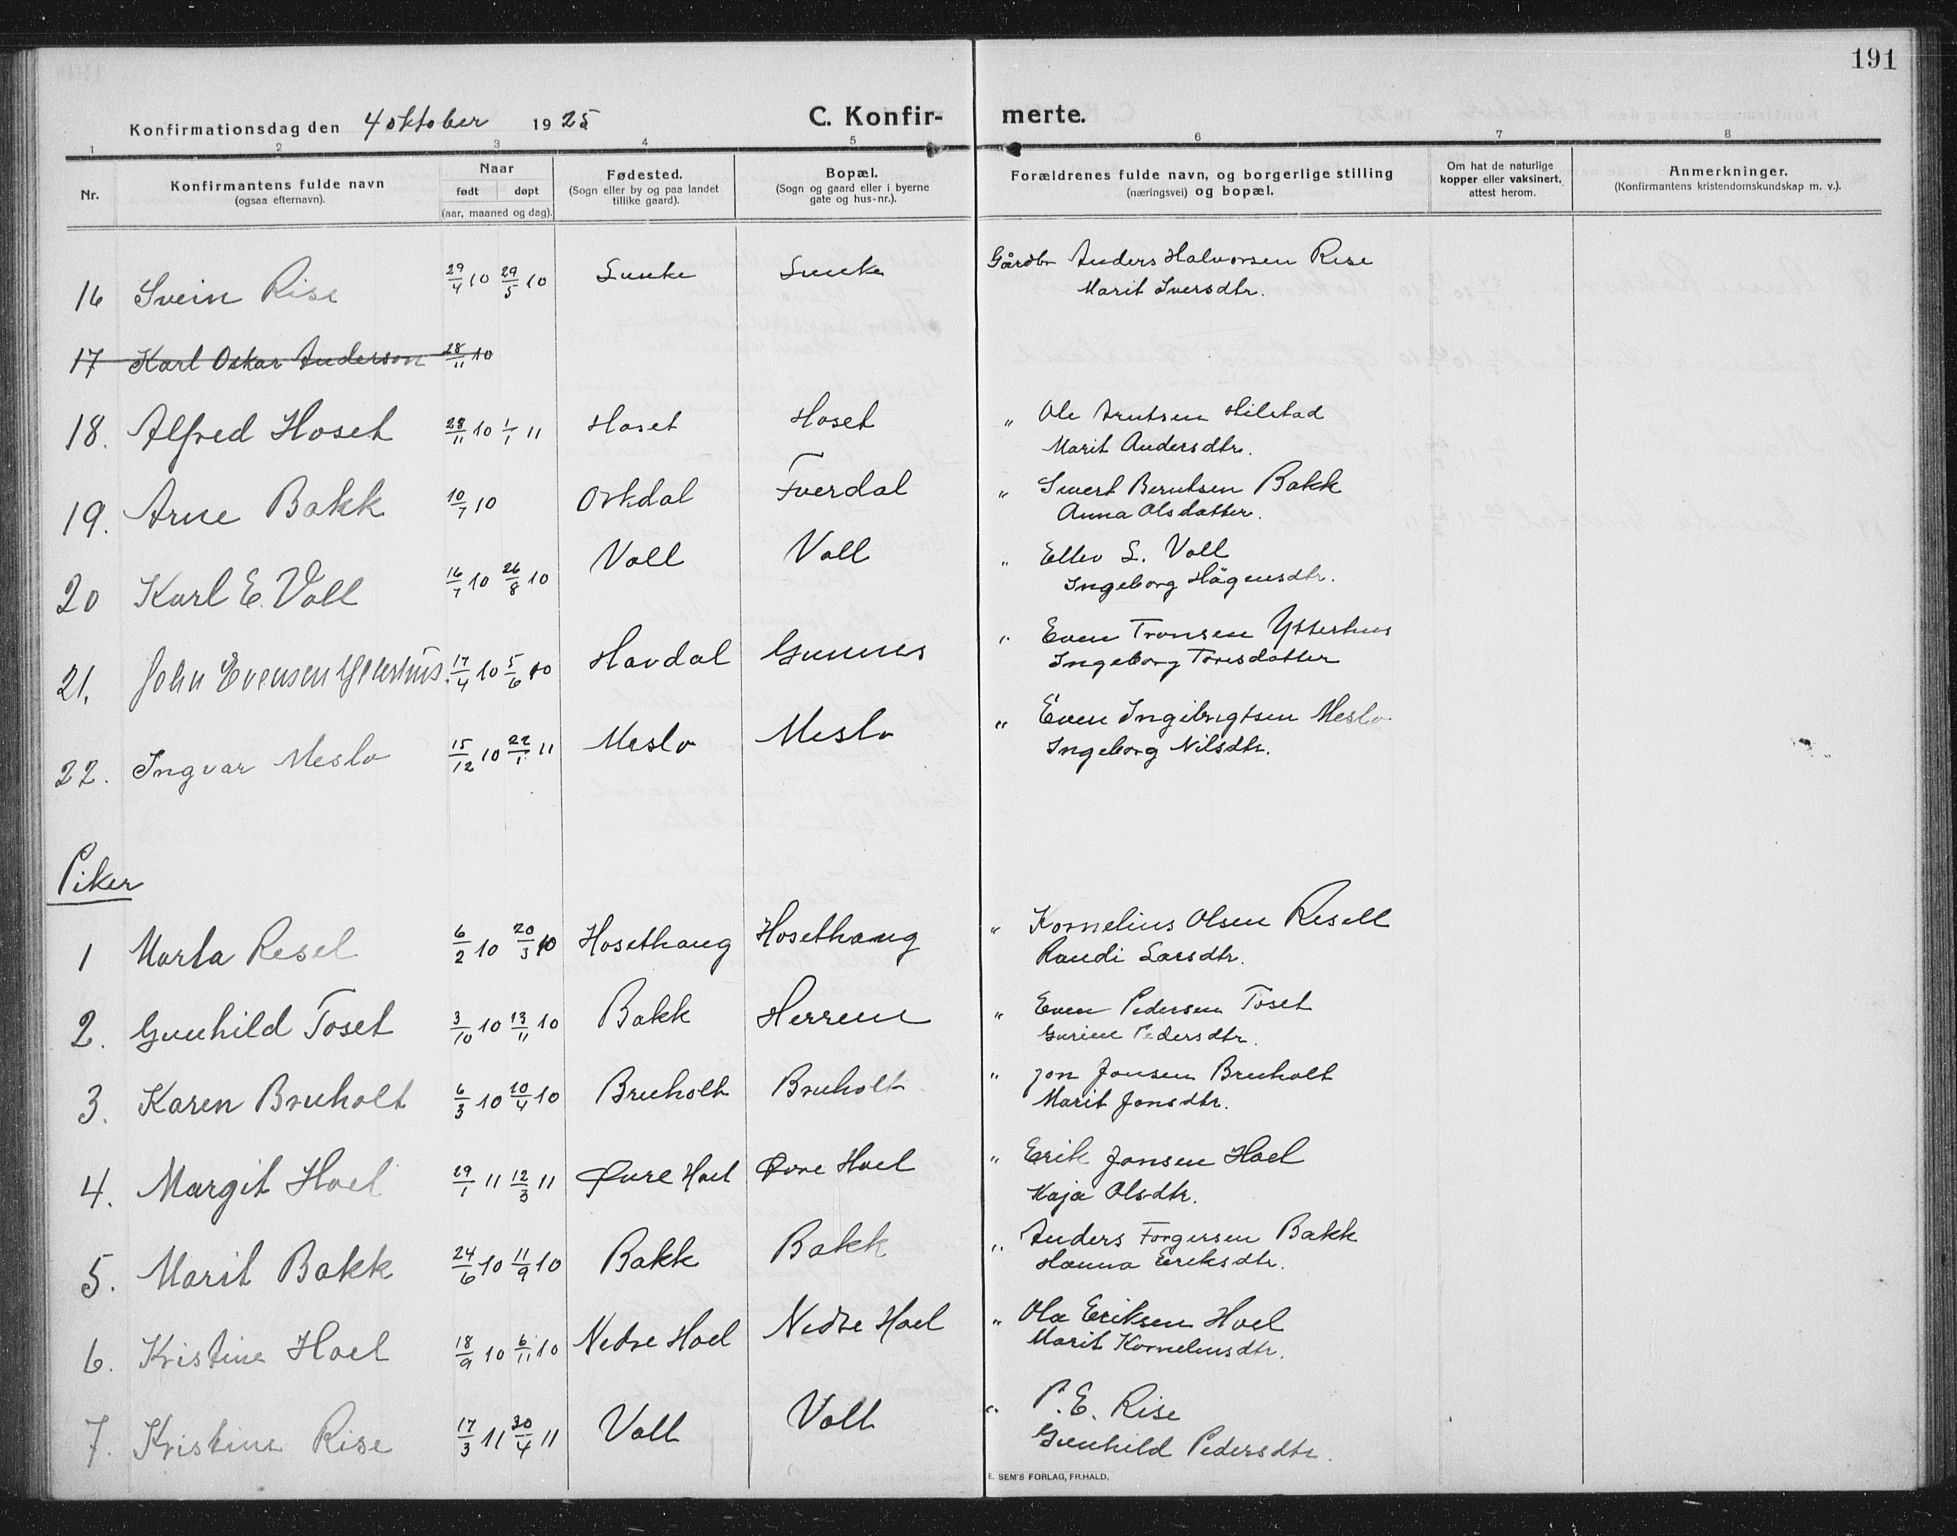 191
Konfirmationsdag den 4 oktober 1925 C. Konfirmerte.
1 2 3 4 5 6 7 8
Nr. Konfirmantens fulde navn (ogsaa efternavn). Naar født døpt (aar, maaned og dag). Fødested. (Sogn eller by og paa landet tillike gaard). Bopæl. (Sogn og gaard eller i byerne gate og hus-nr.). Forældrenes fulde navn, og borgerlige stilling (næringsvei) og bopæl. Om hat de naturlige kopper eller vaksinert, attest herom. Anmerkninger. (Konfirmantens kristendomskundskap m. v.).
16 Svein Rise 29/4 10 29/5 10 Lunke Lunke Gårdbr Anders Halvorsen Rise
Marit Iversdtr.
17 Karl Oskar Anderson 28/11 10
18. Alfred Hoset 28/11 10 1/1 11 Hoset Hoset " Ole Arntsen Hilstad
Marit Andersdtr.
19. Arne Bakk 10/7 10 Orkdal Tverdal " Sivert Berntsen Bakk
Anna Olsdatter.
20 Karl E. Voll 16/7 10 26/8 10 Voll Voll " Ellev L. Voll
Ingeborg Hågensdtr.
21. John Evensen Ytterhus. 17/4 10 5/6 10 Havdal Gunnes " Even Tronsen Ytterhus
Ingeborg Toresdatter
22. Ingvar Meslo 15/12 10 22/1 11 Meslo Meslo " Even Ingebrigtsen Meslo
Ingeborg Nilsdtr.
Piker
1 Marta Resel 6/2 10 20/3 10 Hosethaug Hosethaug " Kornelius Olsen Resell
Randi Larsdtr.
2. Gunhild Toset 3/10 10 13/11 10 Bakk Herrem " Even Pedersen Toset
Gurine Pedersdtr.
3. Karen Bruholt 6/3 10 10/4 10 Bruholt Bruholt " Jon Jonsen Bruholt
Marit Jonsdtr.
4. Margit Hoel 29/1 11 12/3 11 Øvre Hoel Øvre Hoel " Erik Jonsen Hoel
Kaja Olsdtr.
5. Marit Bakk 24/6 10 11/9 10 Bakk Bakk " Anders Torgersen Bakk
Hanna Eriksdtr.
6. Kristine Hoel 18/9 10 6/11 10 Nedre Hoel Nedre Hoel " Ola Eriksen Hoel
Marit Korneliusdtr.
7. Kristine Rise 17/3 11 30/4 11 Voll Voll " P. E. Rise
Gunhild Pedersdtr.
E. SEM'S FORLAG, FR.HALD.